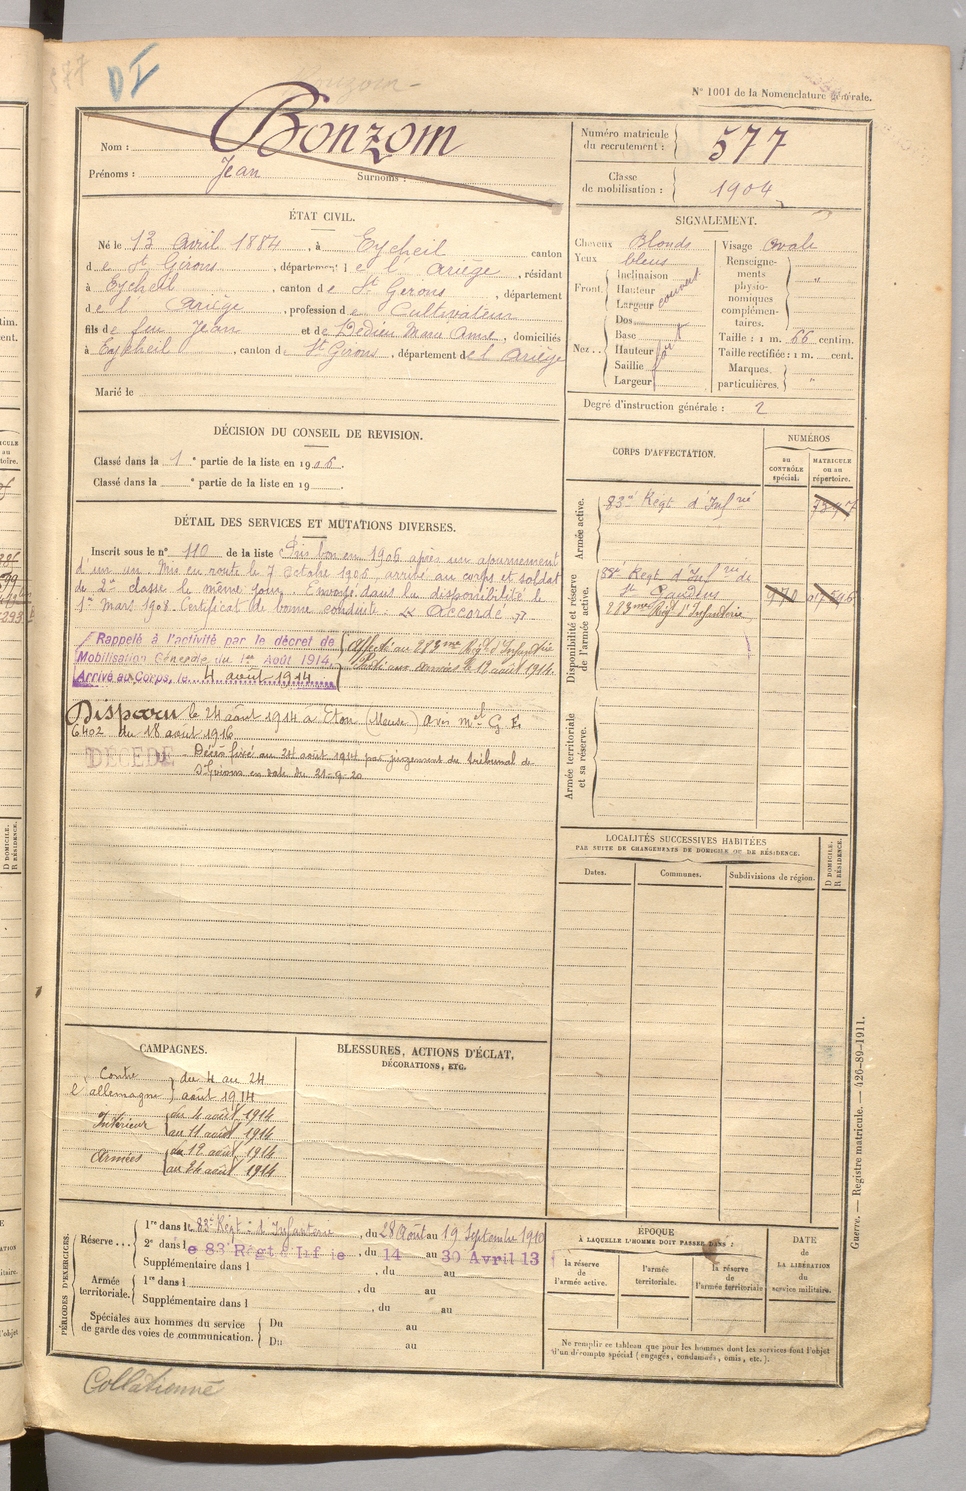 577
DI
Bonzom
N° 1001 de la Nomenclature générale.
Nom : Bonzom
Prénoms : Jean Surnoms :
Numéro matricule du recrutement : 577
Classe de mobilisation : 1904
ÉTAT CIVIL.
Né le 13 Avril 1884, à Eycheil canton
de St Girons, département de l'Ariège, résidant
à Eycheil, canton de St Gerons, département
de l'Ariège, profession de Cultivateur
fils de feu Jean et de Dedieu Marie Anne, domiciliés
à Eycheil, canton de St Girons, département de l'Ariège
Marié le
SIGNALEMENT.
Cheveux blonds
Yeux bleus
Front. Inclinaison
Hauteur couvert
Largeur
Nez... Dos
Base
Hauteur fort
Saillie
Largeur
Visage ovale
Renseignements physionomiques complémentaires. "
Taille : 1 m. 66 centim.
Taille rectifiée : 1 m. cent.
Marques particulières. "
Degré d'instruction générale : 2
DÉCISION DU CONSEIL DE REVISION.
Classé dans la 1e partie de la liste en 1906.
Classé dans la e partie de la liste en 19
DÉTAIL DES SERVICES ET MUTATIONS DIVERSES.
Inscrit sous le n° 110 de la liste Pris bon en 1906 après un ajournement
d'un an. Mis en route le 7 Octobre 1906, arrivé au corps et soldat
de 2e classe le même jour. Envoyé dans la disponibilité le
1er Mars 1908. Certificat de bonne conduite « Accordé »
Rappelé à l'activité par le décret de
Mobilisation Générale du 1er Août 1914.
Arrivé au Corps, le 4 août 1914
Affecté au 283me Régt d'Infanterie
Parti aux armées le 12 août 1914.
Disparu le 24 août 1914 à Eton (Meuse) avis mel G. F.
6402 du 18 août 1916
DÉCÉDÉ Décès fixé au 24 août 1914 par jugement du tribunal de
St Girons en date du 21-9-20
CORPS D'AFFECTATION.
NUMÉROS
au CONTRÔLE spécial.
MATRICULE ou au répertoire.
Armée active.
83e Regt d'Infrie
Disponibilité et réserve de l'armée active.
83e Regt d'Infrie de
St Gaudens 970
283me Régt d'Infanterie
Armée territoriale et sa réserve.
LOCALITÉS SUCCESSIVES HABITÉES
PAR SUITE DE CHANGEMENTS DE DOMICILE OU DE RÉSIDENCE.
Dates.
Communes.
Subdivisions de région.
D DOMICILE.
R RÉSIDENCE.
CAMPAGNES.
Contre l'allemagne du 4 au 24
août 1914
Intérieur du 4 août 1914
au 11 août 1914
Armées du 12 août 1914
au 24 août 1914
BLESSURES, ACTIONS D'ÉCLAT,
DÉCORATIONS, ETC.
PÉRIODES D'EXERCICES.
Réserve... 1re dans le 83e Régt d'Infanterie, du 28 Août au 19 Septembre 1910
2e dans le 83 Régt d'Inf ie, du 14 au 30 Avril 13
Supplémentaire dans l , du au
Armée territoriale. 1re dans l , du au
Supplémentaire dans l , du au
Spéciales aux hommes du service de garde des voies de communication. Du au
Du au
ÉPOQUE
À LAQUELLE L'HOMME DOIT PASSER DANS :
la réserve de l'armée active.
l'armée territoriale.
la réserve de l'armée territoriale
DATE de LA LIBÉRATION du service militaire.
Ne remplir ce tableau que pour les hommes dont les services font l'objet
d'un décompte spécial (engagés, condamnés, omis, etc.).
Guerre. — Registre matricule. — 426-89-1911.
Collationné